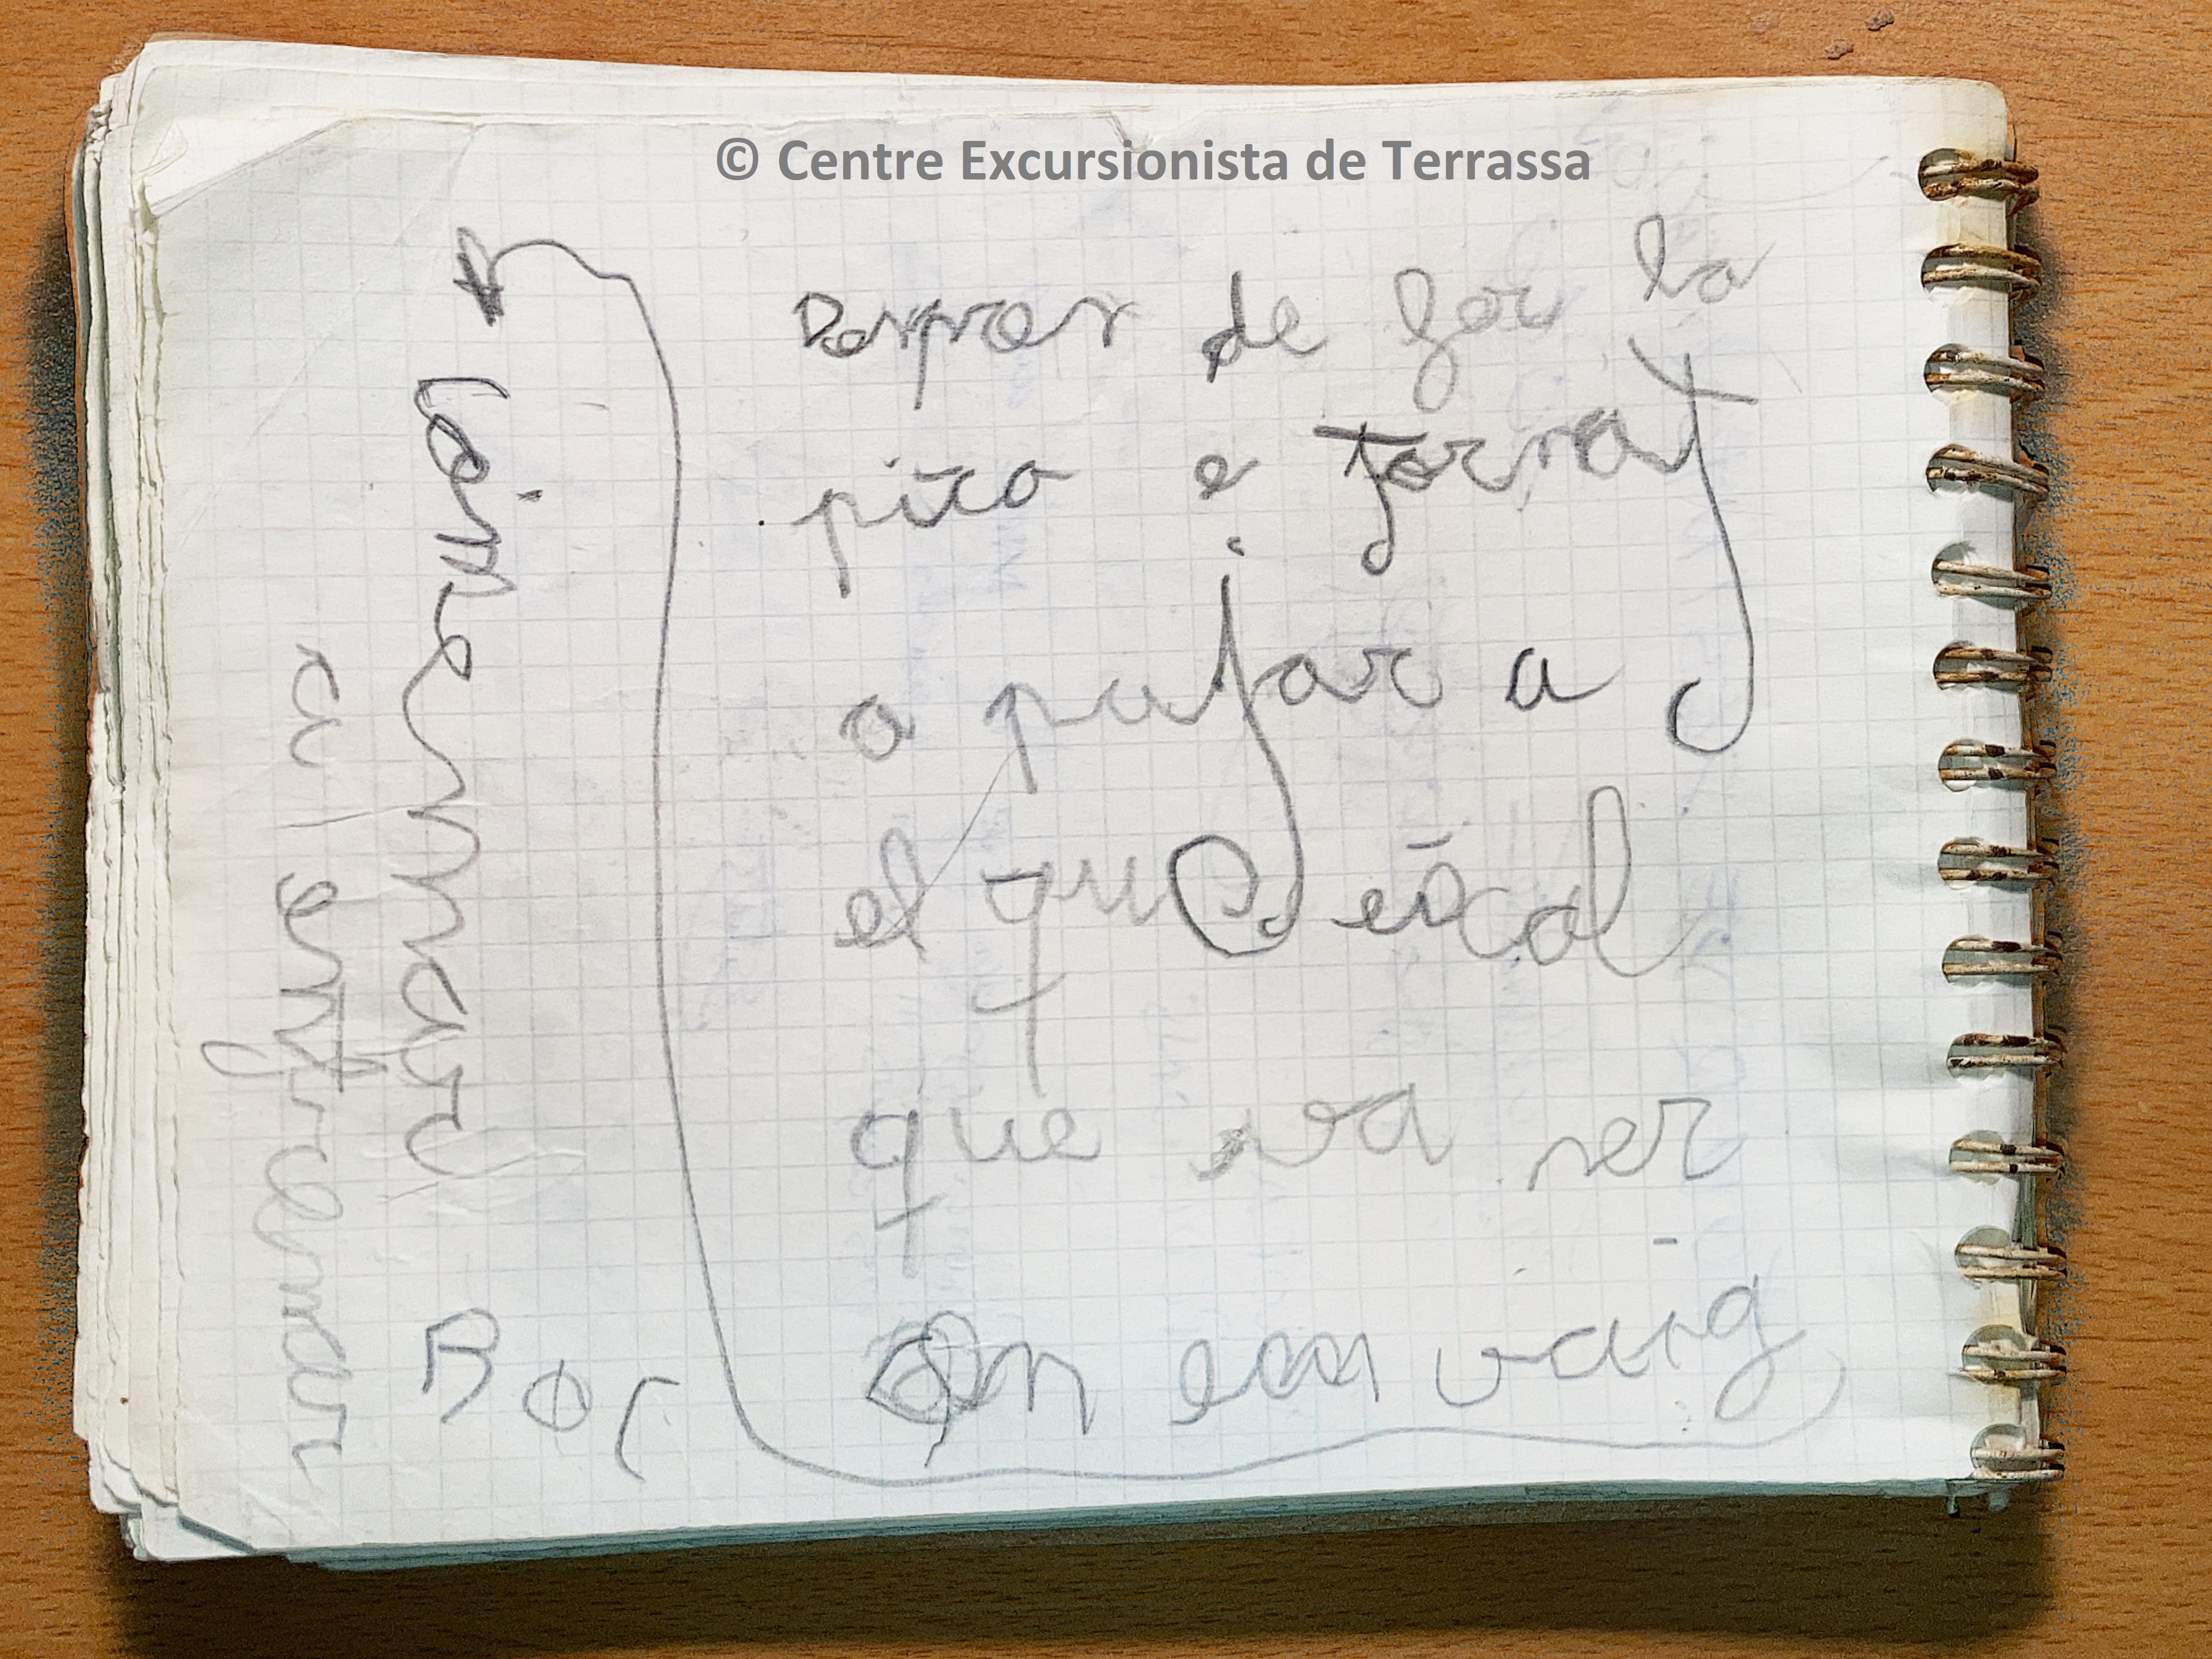 © Centre Excursionista de Terrassa
Despres de fer la
pica e tornat
a pujar a
el que
que va ser
On em vaig
entrenar